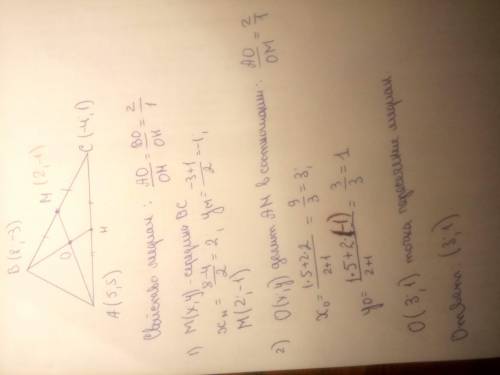 B (8, -3)
M (2; -1)
C (-4, 1)
O
H
A (5, 5)
Свойство медиан: AO/OM = BO/OH = 2/1
1) M(x, y) - середина BC
xм = (8-4)/2 = 2, yм = (-3+1)/2 = -1,
M(2; -1)
2) O(x, y) делит AM в соотношении: AO/OM = 2/1
x₀ = (1·5+2·2)/(2+1) = 9/3 = 3;
y₀ = (1·5+2·(-1))/(2+1) = 3/3 = 1
O(3; 1) точка пересечения медиан
Ответ: (3; 1)